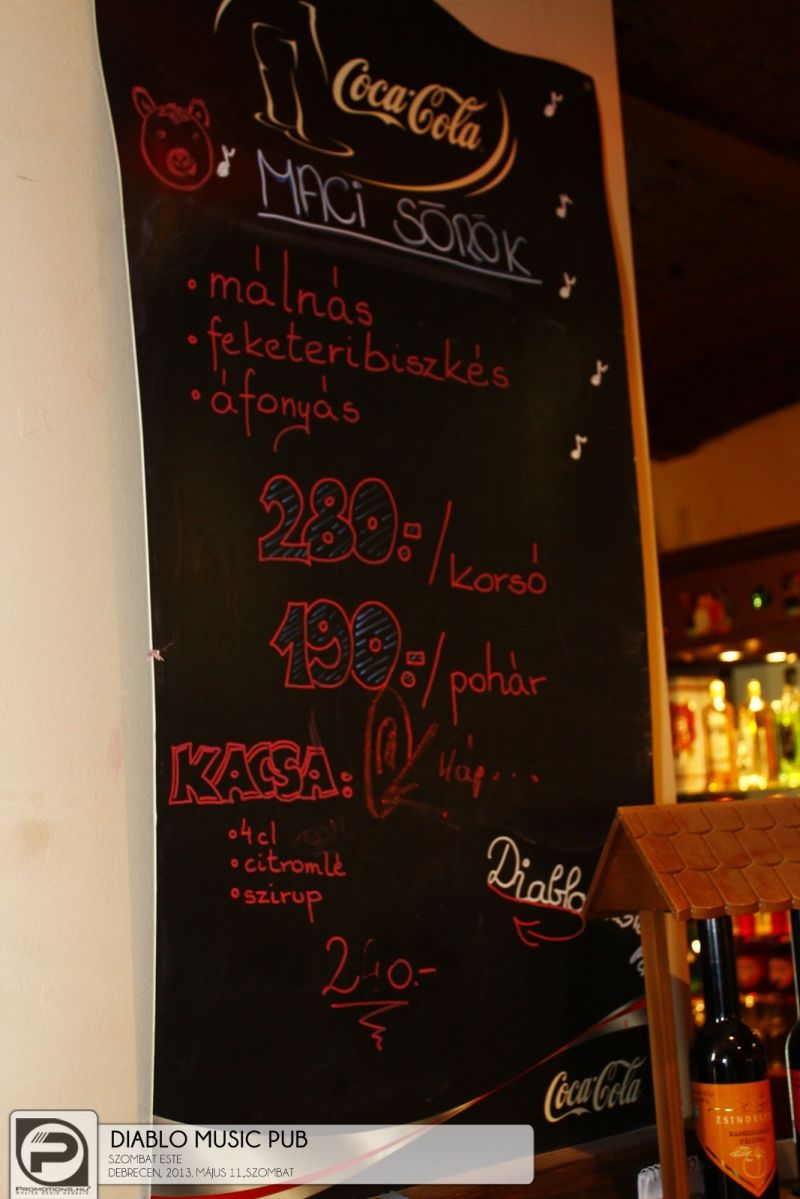 Coca-Cola
MACi SÖRÖK
• málnás
• feketeribiszkés
• áfonyás
280:/korsó
190:/pohár
KACSA: Háp...
• 4cl
• citromlé
• szirup
240.-
Diablo
Coca-Cola
ZSINDELYES
PROMOTIONS.HU
DIABLO MUSIC PUB
SZOMBAT ESTE
DEBRECEN, 2013. MÁJUS 11.,SZOMBAT